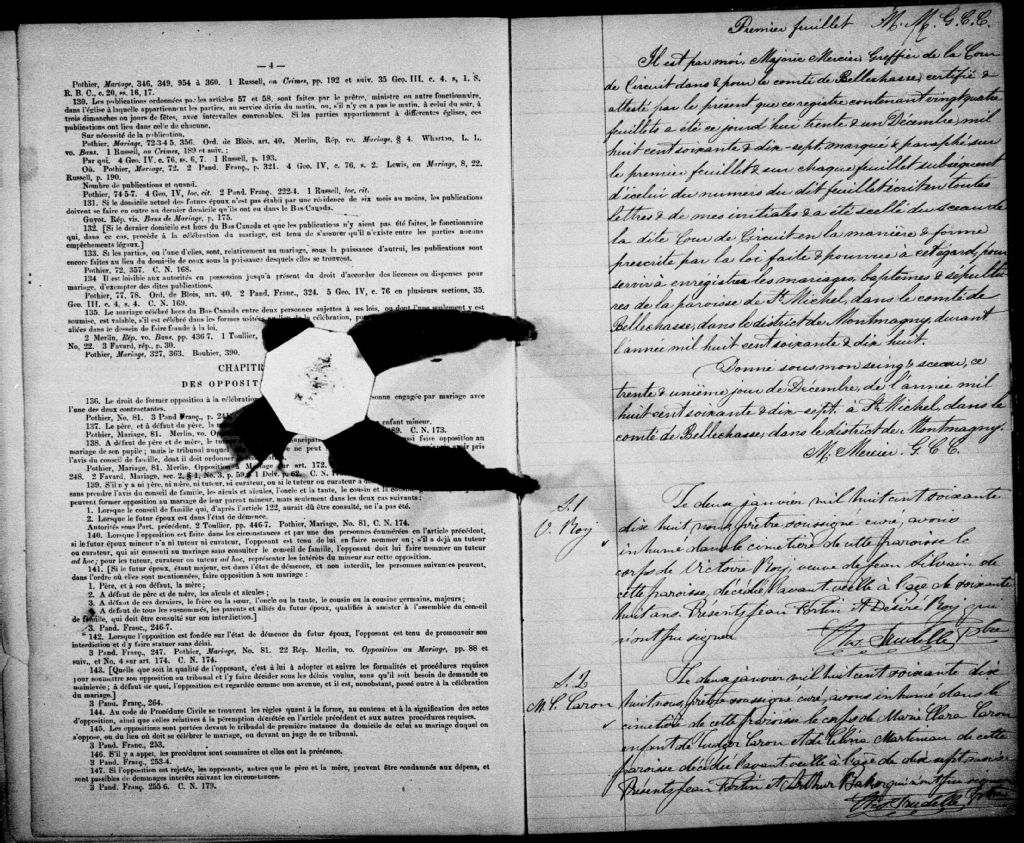 — 4 —
Pothier, Mariage, 346, 349, 954 à 360. 1 Russell, on Crimes, pp. 192 et suiv. 35 Geo. III, c. 4. s, 1. S.
R. B. C., c. 20, ss. 16, 17.
130. Les publications ordonnées par les articles 57 et 58, sont faites par le prêtre, ministre ou autre fonctionnaire,
dans l'église à laquelle appartiennent les parties, au service divin du matin, ou, s'il n'y en a pas le matin, à celui du soir, à
trois dimanches ou jours de fêtes, avec intervalles convenables. Si les parties appartiennent à différentes églises, ces
publications ont lieu dans celle de chacune.
Sur nécessité de la publication.
Pothier, Mariage, 72-3-4-5, 356. Ord. de Blois, art. 40. Merlin, Rép. vo. Mariage, § 4. Wharton, L. L.
vo. Bans. 1 Russell, on Crimes, 189 et suiv. ;
Par qui. 4 Geo. IV. c. 76, ss. 6, 7. 1 Russell, p. 193.
Où. Pothier, Mariage, 72. 2 Pand. Franç., p. 321. 4 Geo. IV, c. 76, s. 2. Lewis, on Mariage, 8, 22.
Russell, p. 190.
Nombre de publications et quand.
Pothier, 74-5-7. 4 Geo. IV, loc. cit. 2 Pand. Franç. 222-4. 1 Russell, loc. cit.
131. Si le domicile actuel des futurs époux n'est pas établi par une résidence de six mois au moins, les publications
doivent se faire en outre au dernier domicile qu'ils ont eu dans le Bas-Canada.
Guyot. Rép. vis. Bans de Mariage, p. 175.
132. [Si le dernier domicile est hors du Bas-Canada et que les publications n'y aient pas été faites, le fonctionnaire
qui, dans ce cas, procède à la célébration du mariage, est tenu de s'assurer qu'il n'existe entre les parties aucuns
empêchements légaux.]
133. Si les parties, ou l'une d'elles, sont, relativement au mariage, sous la puissance d'autrui, les publications sont
encore faites au lieu du domicile de ceux sous la puissance desquels elles se trouvent.
Pothier, 72, 357. C. N. 168.
134 Il est loisible aux autorités en possession jusqu'à présent du droit d'accorder des licences ou dispenses pour
mariage, d'exempter des dites publications.
Pothier, 77, 78. Ord. de Blois, art. 40. 2 Pand. Franc., 324. 5 Geo. IV, c. 76 en plusieurs sections, 35.
Geo. III, c. 4, s. 4. C. N. 169.
135. Le mariage célébré hors du Bas-Canada entre deux personnes sujettes à ses lois, ou dont l'une seulement y est
soumise, est valable, s'il est célébré dans les formes usitées au lieu de la célébration, pourvu
aliées dans le dessein de faire fraude à la loi.
2 Merlin, Rép. vo. Bans, pp. 436-7. 1 Toullier,
No, 22. 3 Favard, rép., p. 30.
Pothier, Mariage, 327, 363. Bouhier, 390.
CHAPITR
DES OPPOSIT
136. Le droit de former opposition à la célébration sonne engagée par mariage avec
l'une des deux contractantes.
Pothier, No. 81. 3 Pand Franç., p. 24
137. Le père, et à défaut du père, la enfant mineur.
Pothier, Mariage, 81. Merlin, vo. Opp 89. C. N. 173.
138. A défaut de père et de mère, le tut aussi faire opposition au
mariage de son pupile ; mais le tribunal auquel ne peut pris
l'avis du conseil de famille, dont il doit ordonner
Pothier, Mariage, 81. Merlin, Opposition à Mariage sur art. 172.
248. 2 Favard, Mariage, sec. 2, § 1, No. 3, p. 59. 1 Delv. p. 62. C. N.
139. S'il n'y a ni père, ni mère, ni tuteur, ni curateur, ou si le tuteur ou curateur a
sans prendre l'avis du conseil de famille, les aïeuls et aïeules, l'oncle et la tante, le cousin et la
peuvent former opposition au mariage de leur parent mineur, mais seulement dans les deux cas suivants :
1. Lorsque le conseil de famille qui, d'après l'article 122, aurait dû être consulté, ne l'a pas été.
2. Lorsque le futur époux est dans l'état de démence.
Autorités sous Part. précédent, 2 Toullier, pp. 446-7. Pothier, Mariage, No. 81, C. N. 174.
140. Lorsque l'opposition est faite dans les circonstances et par une des personnes énumérées en l'article précédent,
si le futur époux mineur n'a ni tuteur ni curateur, l'opposant est tenu de lui en faire nommer un ; s'il a déjà un tuteur
ou curateur, qui ait consenti au mariage sans consulter le conseil de famille, l'opposant doit lui faire nommer un tuteur
ad hoc ; pour les tuteur, curateur ou tuteur ad hoc, représenter les intérêts du mineur sur cette opposition.
141. [Si le futur époux, étant majeur, est dans l'état de démence, et non interdit, les personnes suivantes peuvent,
dans l'ordre où elles sont mentionnées, faire opposition à son mariage :
1. Père, et à son défaut, la mère ;
2. A défaut de père et de mère, les aïeuls et aïeules ;
3. A défaut de ces derniers, le frère ou la sœur, l'oncle ou la tante, le cousin ou la cousine germains, majeurs ;
4. A défaut de tous les susnommés, les parents et alliés du futur époux, qualifiés à assister à l'assemblée du conseil
de famille, qui doit être consulté sur son interdiction.]
3. Pand. Franç., 246-7.
142. Lorsque l'opposition est fondée sur l'état de démence du futur époux, l'opposant est tenu de promouvoir son
interdiction et d'y faire statuer sans délai.
3 Pand. Franç., 247. Pothier, Mariage, No. 81. 22 Rép. Merlin, vo. Opposition au Mariage, pp. 88 et
suiv., et No. 4 sur art. 174. C. N. 174.
143. [Quelle que soit la qualité de l'opposant, c'est à lui à adopter et suivre les formalités et procédures requises
pour soumettre son opposition au tribunal et l'y faire décider sous les délais voulus, sans qu'il soit besoin de demande en
mainlevée ; à défaut de quoi, l'opposition est regardée comme non avenue, et il est, nonobstant, passé outre à la célébration
du mariage.]
3 Pand. Franç., 264.
144. Au code de Procédure Civile se trouvent les règles quant à la forme, au contenu et à la signification des actes
d'opposition, ainsi que celles relatives à la péremption décrétée en l'article précédent et aux autres procédures requises.
145. Les oppositions sont portées devant le tribunal de première instance du domicile de celui au mariage duquel on
s'oppose, ou du lieu où doit se célébrer le mariage, ou devant un juge de ce tribunal.
3 Pand. Franc., 253.
146. S'il y a appel, les procédures sont sommaires et elles ont la préséance.
3 Pand. Franç., 253-4.
147. Si l'opposition est rejetée, les opposants, autres que le père et la mère, peuvent être condamnés aux dépens, et
sont passibles de dommages intérêts suivant les circonstances.
3 Pand. Franç. 255-6. C. N. 179.
Premier feuillet M. M. G. C. C.
Il est par moi, Majorie Mercier Greffier de la Cour
de Circuit dans & pour le comté de Bellechasse, certifié &
attesté par le présent que ce registre contenant vingt quatre
feuillets a été ce jourd'hui trente & un Décembre, mil
huit cent soixante & dix-sept marqué & paraphé sur
le premier feuillet & sur chaque feuillet subséquent
d'icelui du numéro du dit feuillet écrit en toutes
lettres & de mes initiales & a été scellé du sceau de
la dite Cour de Circuit en la manière & forme
prescrite par la loi faite & pourvue à cet égard, pour
servir à enregistrer les mariages, baptêmes & sépultu-
res de la paroisse de St. Michel, dans le comté de
Bellechasse, dans le district de Montmagny, durant
l'année mil huit cent soixante & dix huit.
Donné sous mon seing & sceau, ce
trente & unième jour de Décembre, de l'année mil
huit cent soixante & dix-sept. à St. Michel, dans le
comté de Bellechasse, dans le district de Montmagny.
M. Mercier. G. C. C.
S. 1
V. Roy
Le deux janvier mil huit cent soixante
dix huit nous, prêtre soussigné curé, avons
inhumé dans le cimetière de cette paroisse le
corps de Victoire Roy, veuve de Jean Silvain de
cette paroisse, décédée l'avant veille à l'age de soixante
huit ans. Présents Jean Fortin et Désiré Roy qui
n'ont pu signer.
S. 2
M. C. Caron
Le deux janvier mil huit cent soixante dix
huit nous, prêtre soussigné curé, avons inhumé dans le
cimetière de cette paroisse le corps de Marie Clara Caron
enfant de Ludger Caron et de Célina Martineau de cette
paroisse décédée l'avant veille à l'age de dix sept mois
Présents Jean Fortin et Arthur qui n'ont pu signer